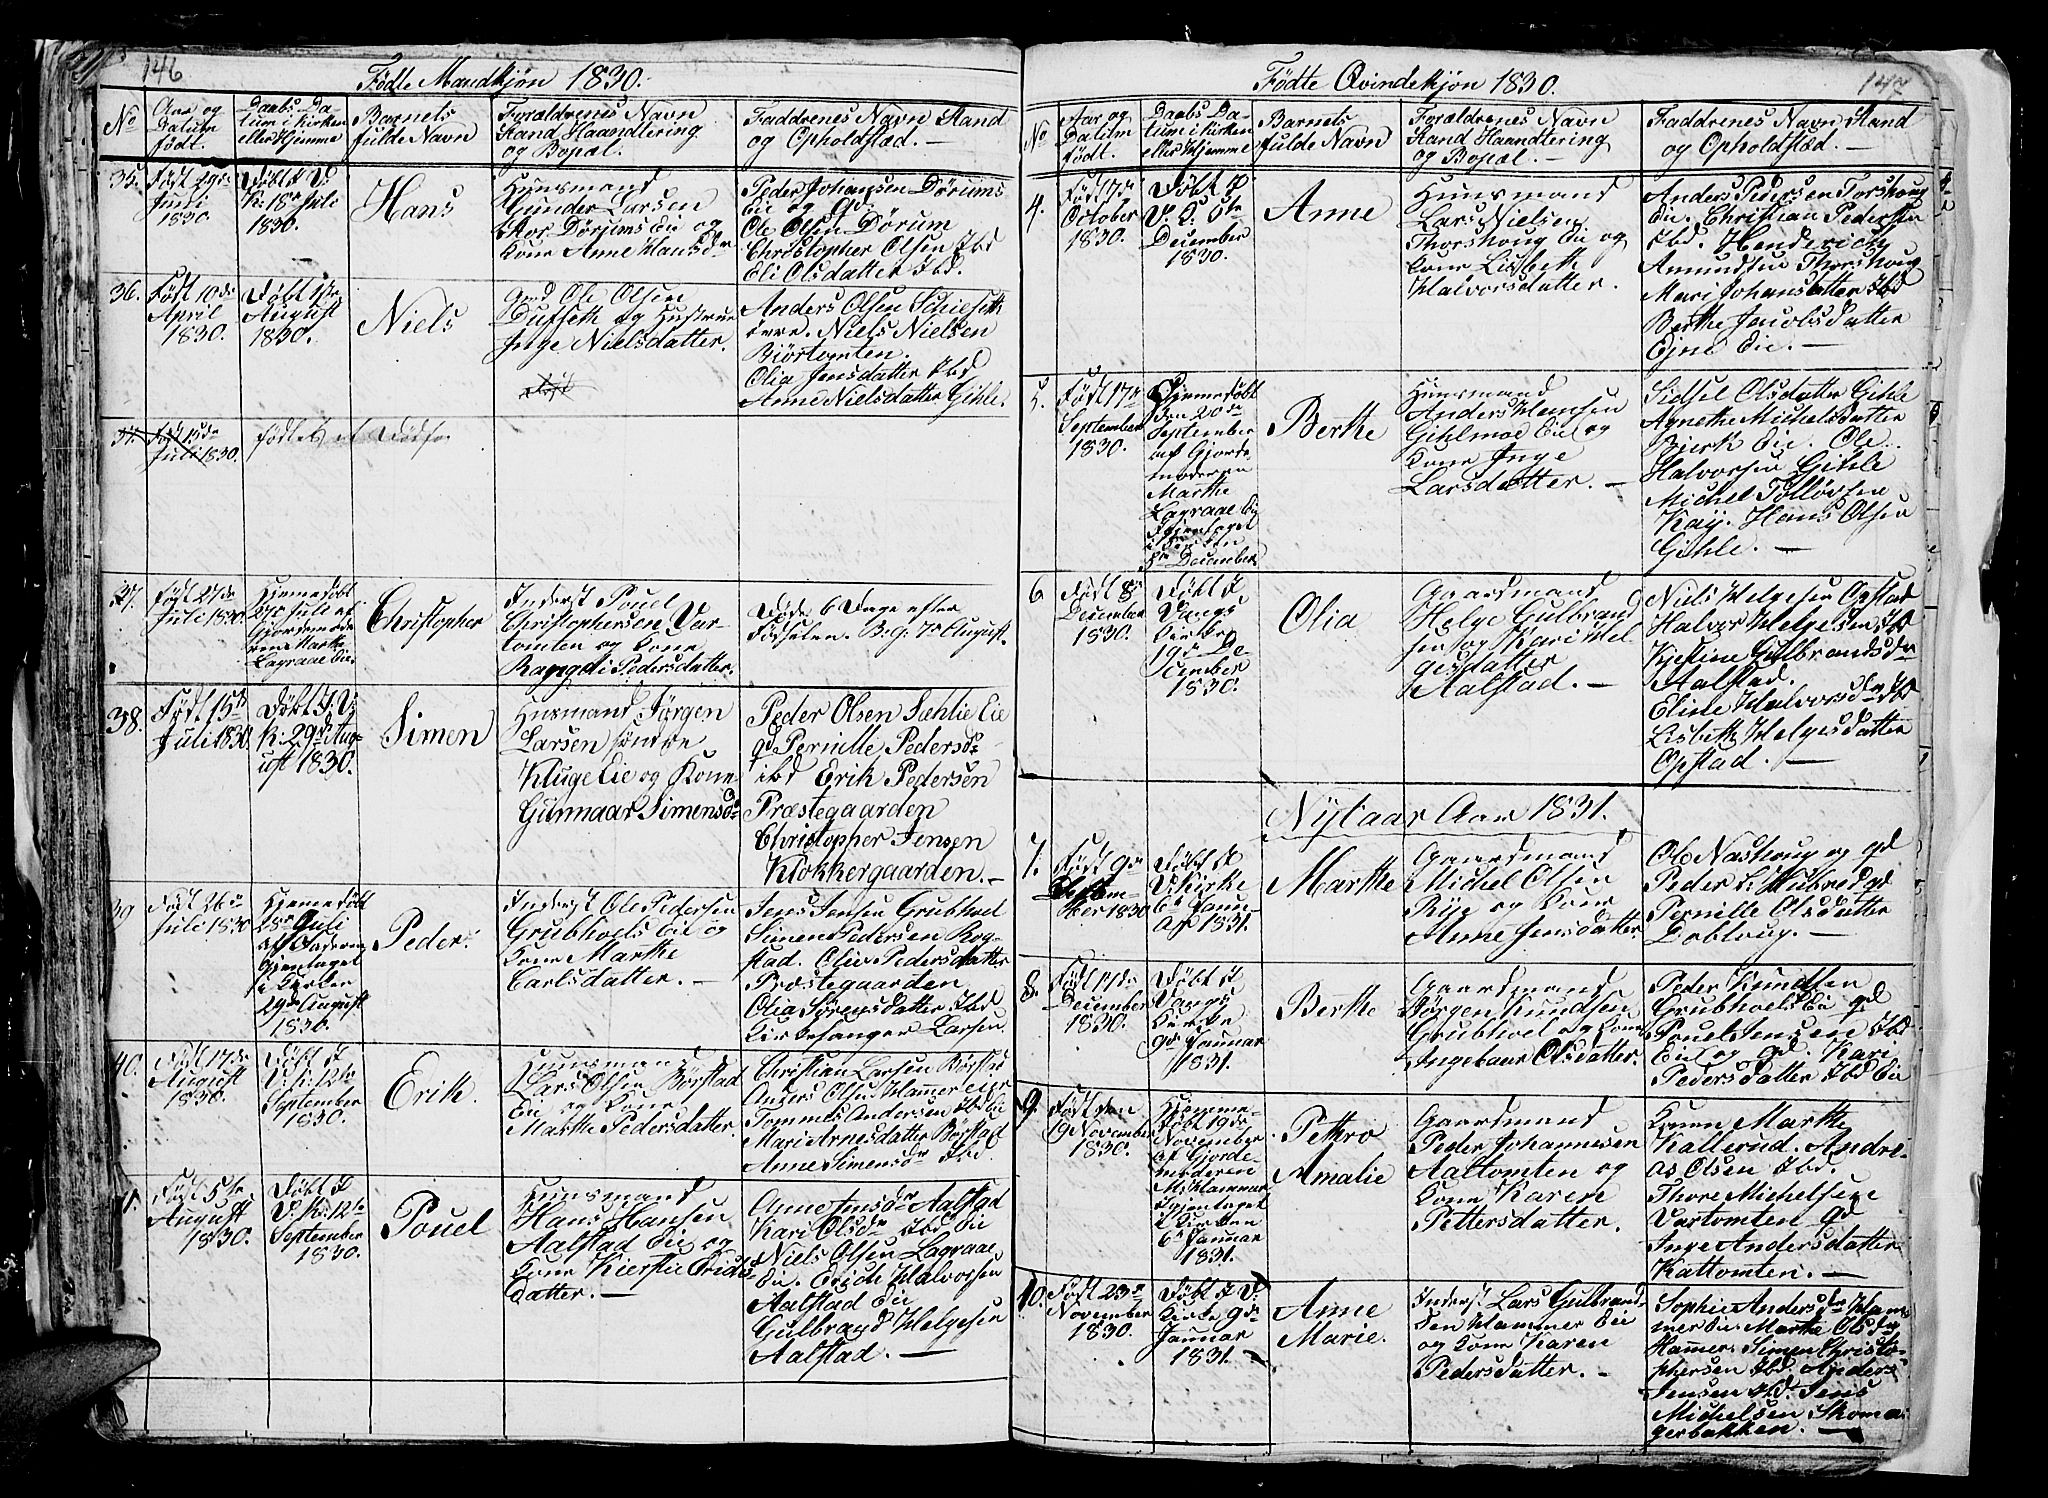 146
Fødte Mandkjøn 1830.
No
Aar og
Datum
født.
Daabs Da-
tum i Kirken
eller Hjemme
Barnets
fulde Navn
Forældrenes Navn
Stand Haandtering
og Bopæl.
Faddrenes Navn Stand
og Opholdsstæd. —
35.
Født 29de
Juni
1830.
Døbt I V
K: 18de Julie
1830.
Hans
Huusmand
Gunder Larsen
Stor Dørums Eie og
Kone Anne Hansdr
Peder Johansen Dørums
Eie og Gd.
Ole Olsen Dørum
Christopher Olsen Ibd
Eli Olsdatter Ibd.
36.
Født 10de
April
1830.
Døbt 1ste
August
1830.
Niels
Gmd Ole Olsen
Duffeth og Hustrue
Inge Nielsdatter.
Anders Olsen
Niels Nielsen
Biørtomten.
Olia Jensdatter Ibd
Anne Nielsdatter Gihle.
Født 15de
Juli 1830.
37.
Født 27de
Juli 1830.
Hjemedøbt
Juli af
Gjordemode
ren Marthe
Lagraae Eie.
Christopher
Inderst Pouel
Christophersen Var-
tomten og Kone
Rangdi Pedersdatter.
Døde 6 Dage efter
Fødselen. B: g: 7de August.
38.
Født 15de
Juli 1830.
Døbt I V:
K: 29de Aug-
ust 1830.
Simen
Husmand Jørgen
Larsen søndre
Kluge Eie og Kone
Gunnaar Simensdr
Peder Olsen Sæhlie Eie
gd Pernille Pedersdr
ibd Erik Pedersen
Præstegaarden
Christopher Jensen
Klokkergaarden. —
39
Født 26de
Juli 1830
Hjemedøbt
28de Juli
af Faderen
Gjentaget
i Kirken
29de August
1830.
Peder.
Inderst Ole Pedersen
Grubhoels Eie og
Kone Marthe
Carlsdatter. —
Jens Jensen Grubhoel
Simen Pedersen Rog-
stad. Olia Pedersdatter
Præstegaarden
Olia Sørensdatter Ibd
Kirkesanger Larsen.
40.
Født 17de
August
1830.
Døbt I
V: K: 12te
September
1830.
Erik.
Huusmand
Lars Olsen Børstad
Eie og Kone
Marthe Pedersdatter.
Christian Larsen Børstad
Anders Olsen Hammer Eie
Tommes Andersen Ibd Eie
Mari Arnesdatter Børstad
Anne Simensdr Ibd.
41.
Født 5te
August
1830.
Døbt I
V. K: 12te
September
1830.
Pouel
Huusmand
Hans Hansen
Aalstad Eie og
Kone Kierstie Eriks
datter. —
Anne Jensdr Aalstad
Kari Olsdr Ibd Eie
Niels Olsen Lagraae
Eie. Erich Halvorsen
Aalstad Eie
Gulbrand Helgesen
Aalstad. —
147
Fødte Qvindekjøn 1830.
No
Aar og
Datum
født.
Daabs Da-
tum i Kirken
eller Hjemme
Barnets
fulde Navn
Forældrenes Navn
Stand Haandtering
og Bopæl. —
Faddrenes Navn Stand
og Opholdsstæd. —
4.
Født 17de
October
1830.
Døbt I
V. K. 6te
December
1830.
Anne
Huusmand
Lars Nielsen
Thorshoug Eie og
Kone Lisbeth
Halvorsdatter.
Anders Pedersen Torshoug
Eie. Christian Pedersen
Ibd. Henderich
Amundsen Thorshoug
Mari Johansdatter Ibd
Berthe Jacobsdatter
Ejne Eie. —
5.
Født 17de
September
1830.
Hjemedøbt
den 20de
September
af Gjorde
moderen
Marthe
Lagraae Eie
Igjentaget
i Kirken
December
Berthe
Huusmand
Anders Hansen
Gihlmoe Eie og
Kone Inge
Larsdatter. —
Sidsel Olsdatter Gihle
Agnethe Michelsdatter
Bjerk Eie. Ole
Halvorsen Gihle
Michel Tollovsen
Kay. Hans Olsen
Gihle. —
6
Født 8de
December
1830.
Døbt I
Vangs
Kirke
19de De-
cember
1830.
Olia
Gaardmand
Helge Gulbrand
sen og Kari Hel
gesdatter
Aalstad. —
Niels Helgesen Opstad
Halvor Helgesen Ibd
Kjestine Gulbrandsdr
Aalstad.
Eline Halvorsdr Ibd
Lisbeth Helgesdatter
Opstad. —
Nytaar Aar 1831.
7.
Født 9de
Septem-
ber 1830
Døbt I
V: Kirke
6te Janu-
ar 1831.
Marthe
Gaardmand
Michel Olsen
Rye og Kone
Anne Jensdatter.
Ole Nashoug og gd
Peder L: Hubred gd
Pernille Olsdatter
Dobloug. —
8.
Født 11de
December
1830.
Døbt I
Vangs
Kirke
9de Januar
1831.
Berthe
Gaardmand
Børgen Knudsen
Grubhoel og Kone
Ingebaar Olsdatter.
Peder Knudsen
Grubhoels Eie gd
Pouel Jensen Ibd
Eie og gd. Kari
Pedersdatter Ibd Eie
9.
Født den
19 November
1830.
Hjemme-
døbt 19de
November
af Gjorde-
moderen
M: Hammer
Igjentaget
i Kirken
6te Januar
1831.
Pethro
Amalie
Gaardmand
Peder Johannesen
Aaltomten og
Kone Karen
Pettersdatter.
Konen Marthe
Kallerud. Andre-
as Olsen Ibd.
Thore Michelsen
Vartomten gd
Inge Andersdatter
Kattomten. —
10.
Født 23de
November
1830.
Døbt I V:
Kirke 9de
Januar
1831.
Anne
Marie.
Inderst Lars Gulbrand-
sen Hammer Eie
og Kone Karen
Pedersdatter. -
Sophie Andersdr Ham-
mer Eie. Marthe Olsdr
Hamer. Simen Christo-
phersen Ibd. Anders
Jensen Ibd. Jens
Michelsen Skoma-
gerbakken. —